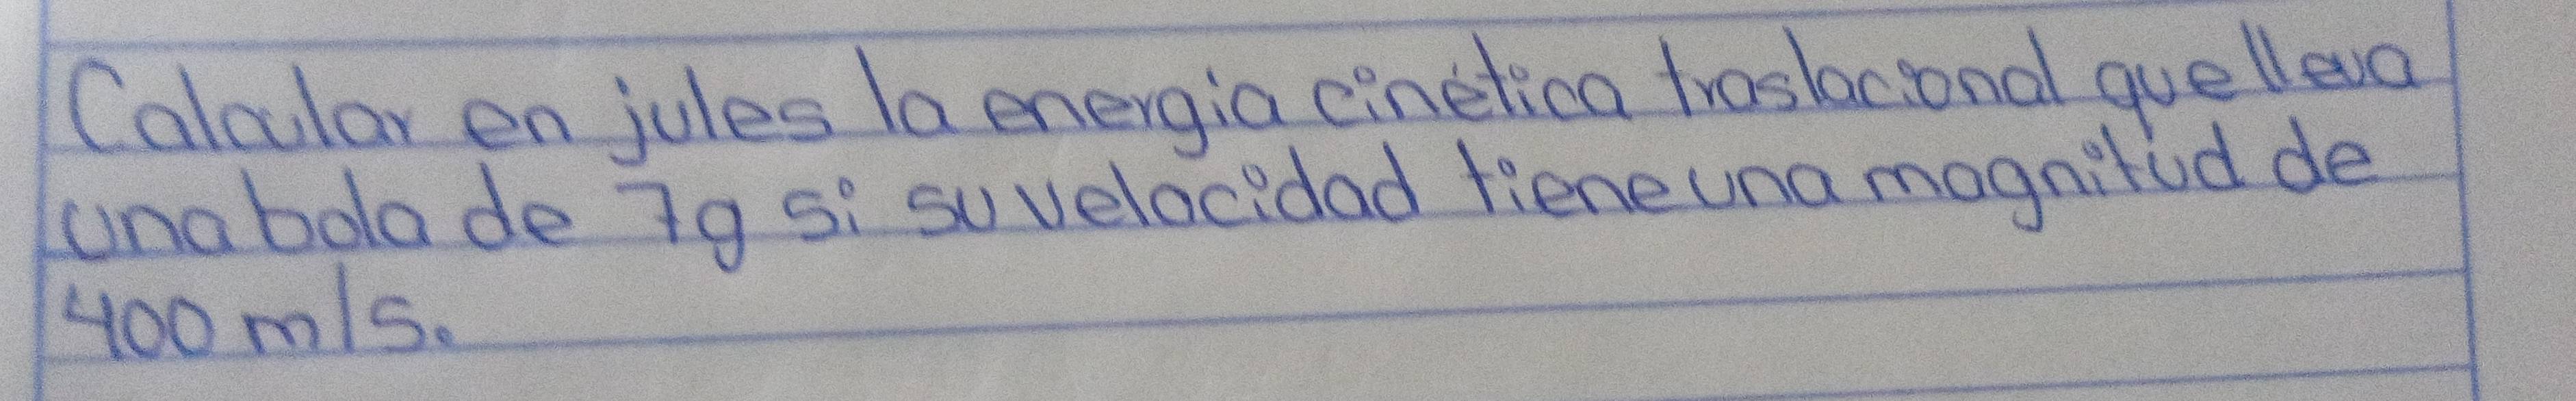 Calcular en jules la energia cinética traslacional que lleva
una bola de 7g si su velocidad tiene una magnitud de
400 m/s.